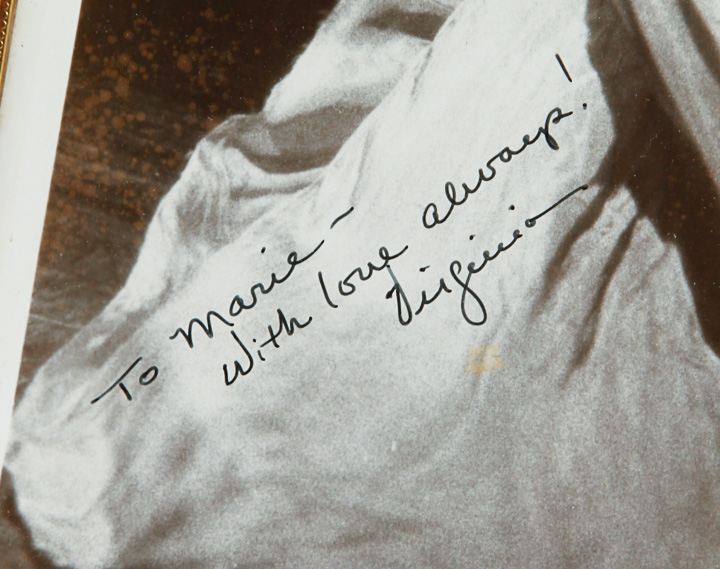 To Marie -
With love always!
Virginia